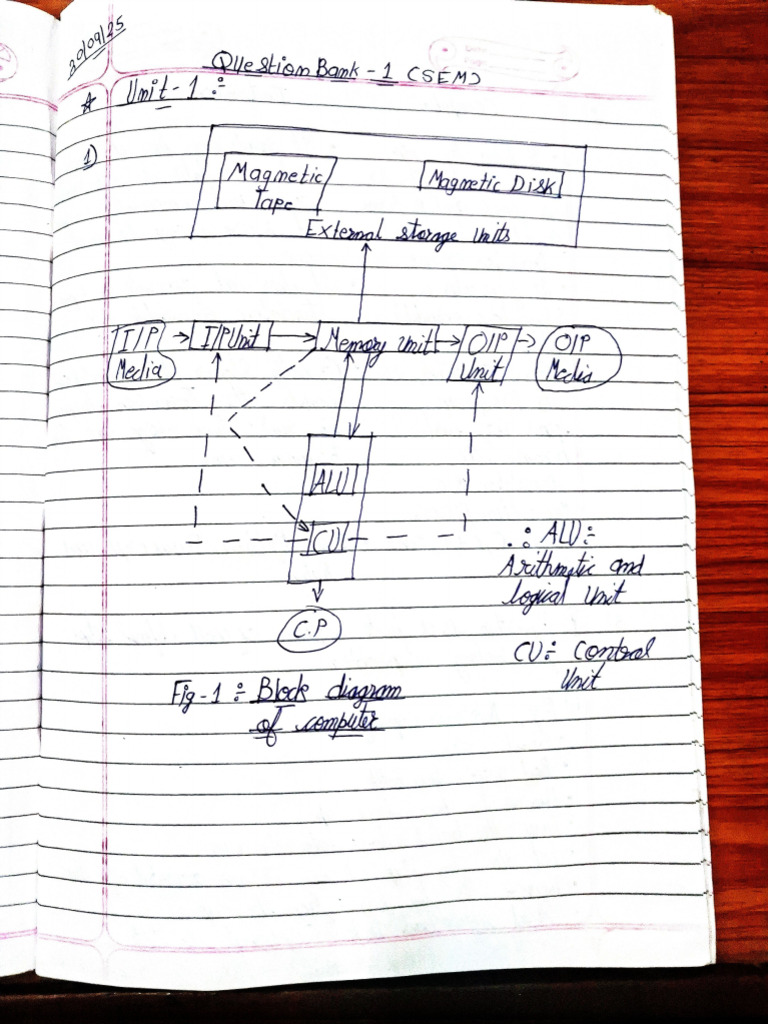 20/09/25
Question Bank - 1 (SEM)
☆ Unit - 1 :-
1)
Magnetic
Tape
Magnetic Disk
External storage units
I/P
Media
I/P Unit
Memory Unit
O/P
Unit
O/P
Media
ALU
CU
C.P
∴ ALU :-
Arithmatic and
logical Unit
CU :- Control
Unit
Fig - 1 :- Block diagram
of computer